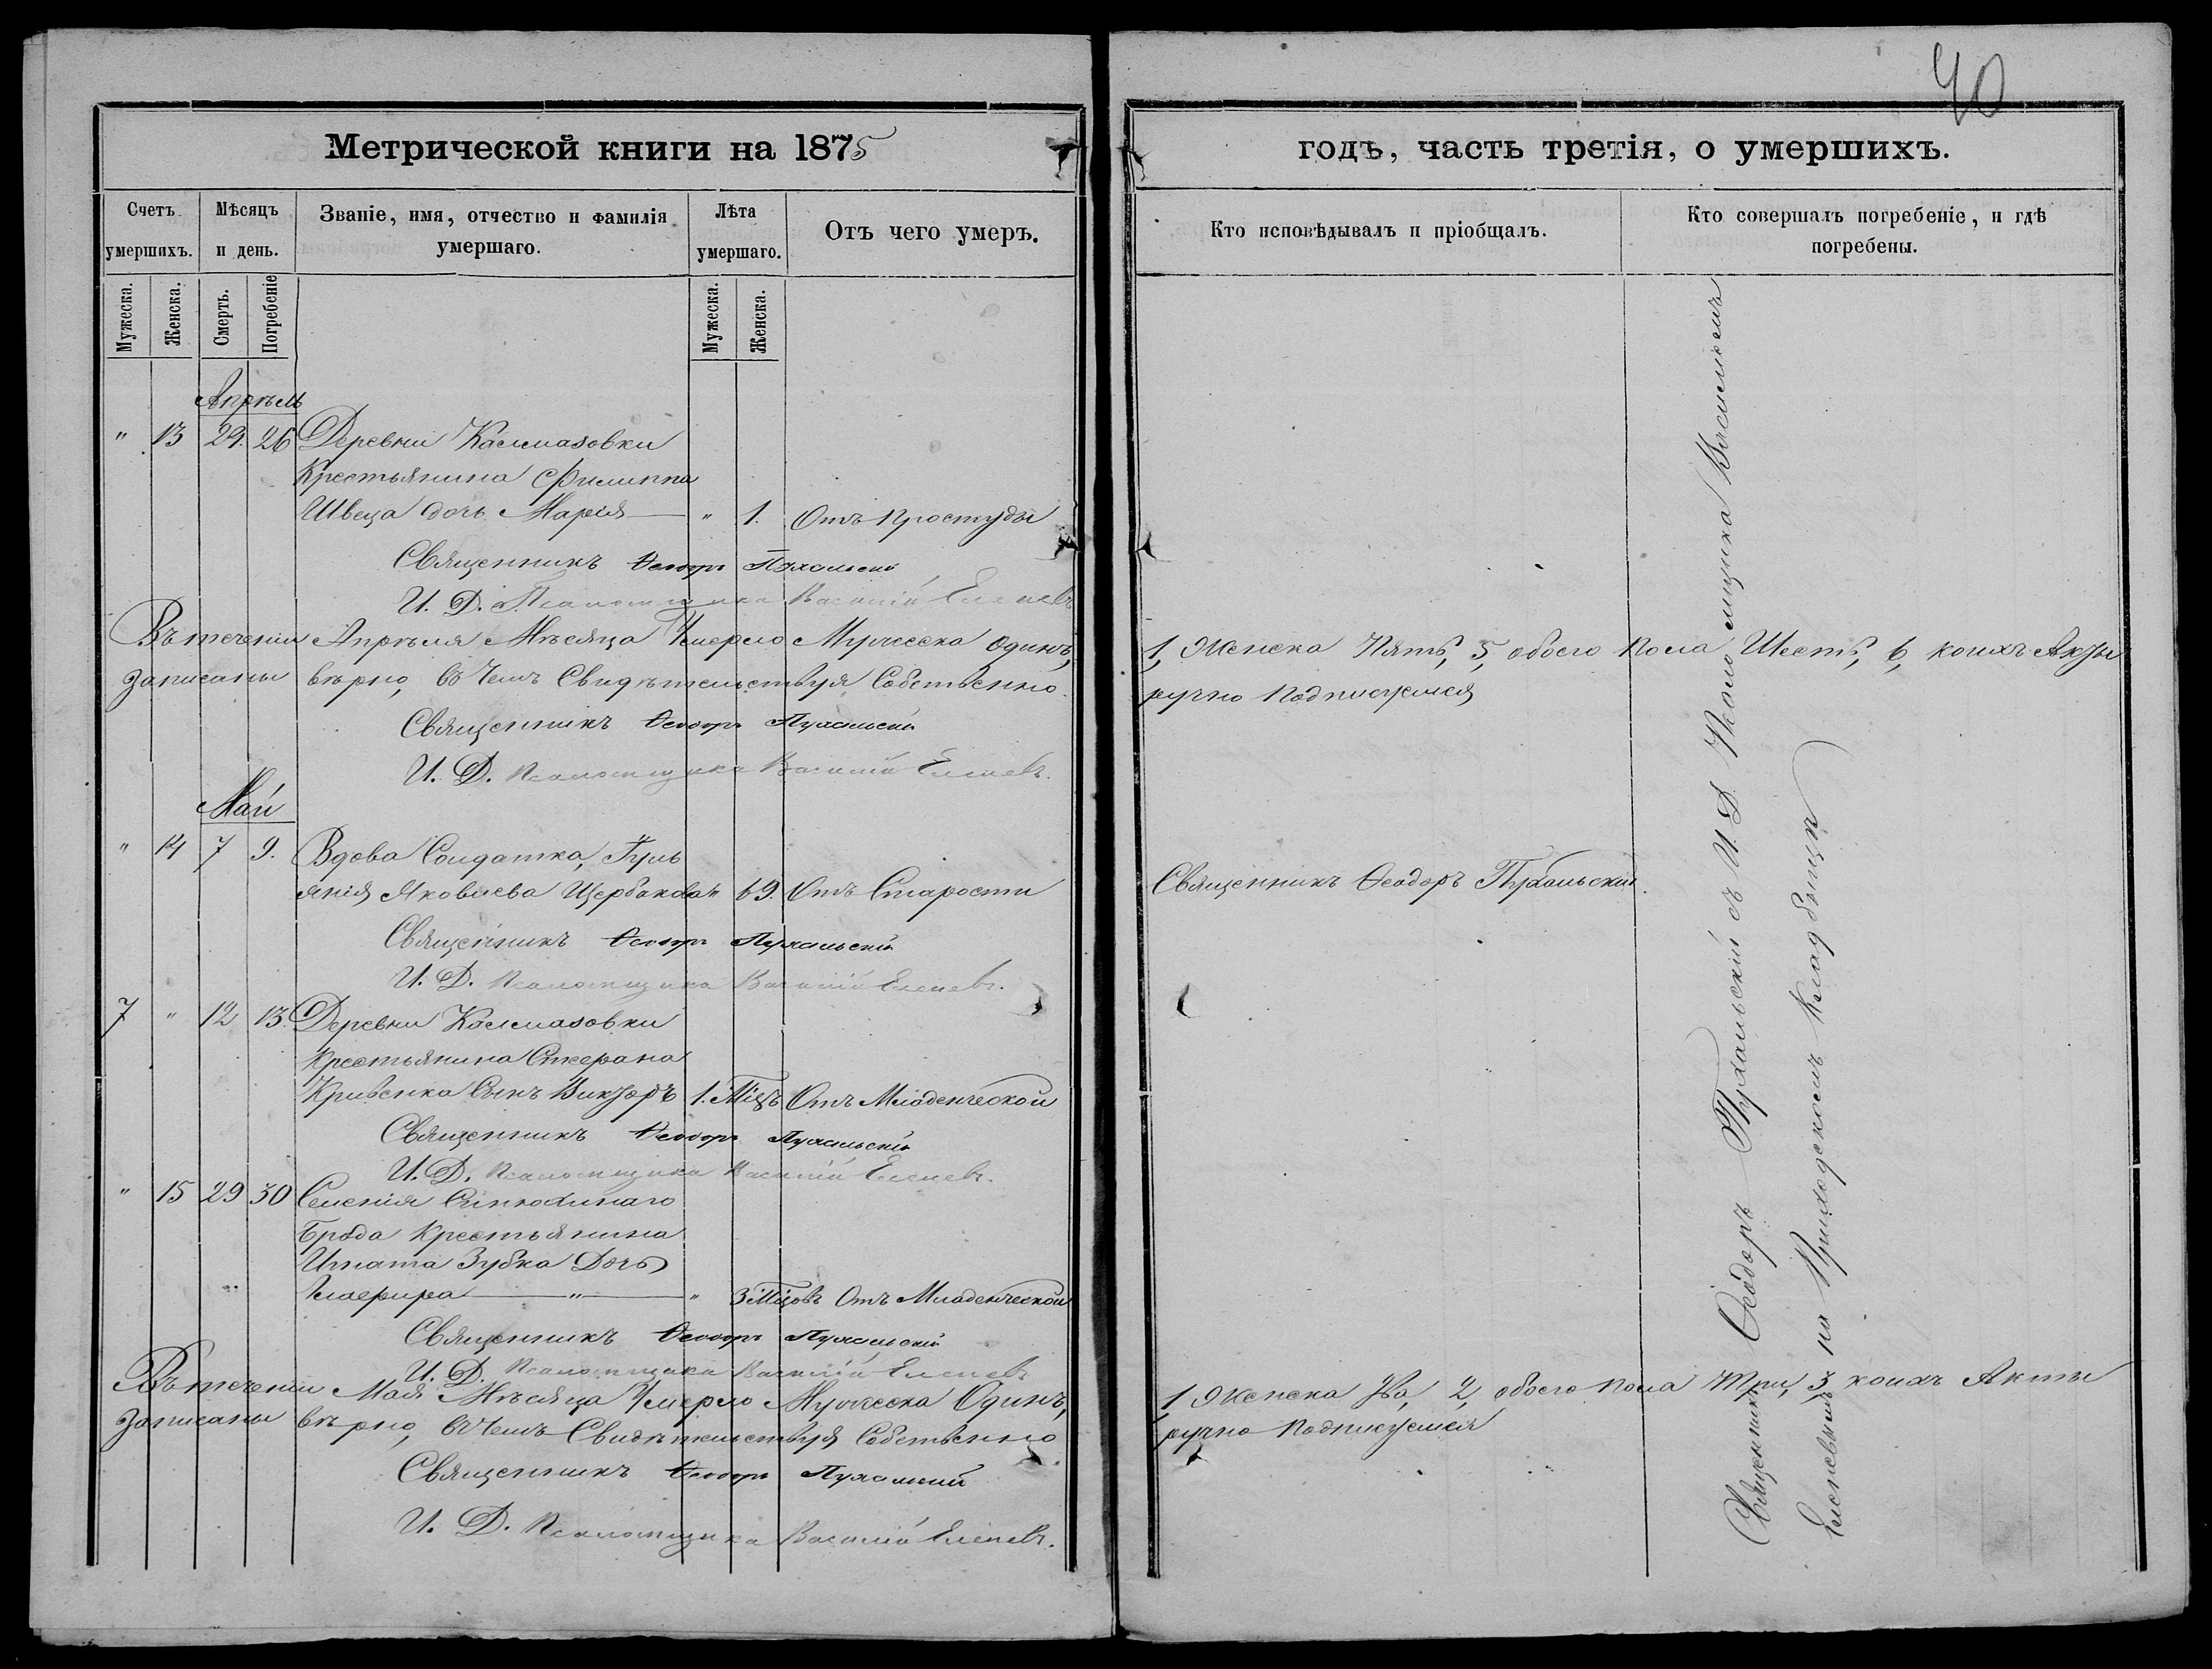 40
Метрической книги на 1875
годъ, часть третія, о умершихъ.
Счетъ умершихъ.
Мѣсяцъ и день.
Званіе, имя, отчество и фамилія умершаго.
Лѣта умершаго.
Отъ чего умеръ.
Кто исповѣдывалъ и пріобщалъ.
Кто совершалъ погребеніе, и гдѣ погребены.
Мужеска.
Женска.
Смерть.
Погребеніе
Мужеска.
Женска.
Апрѣль
" 13 24. 26 Деревни Калмазовки
Крестьянина Филиппа
Швеца дочь Марія — " 1. Отъ простуды
Священникъ Ѳеодоръ Пухальскій
И. Д. Псаломщика Василій Еленевъ
Въ теченіи Апрѣля Мѣсяца Умерло Мужеска одинъ, 1, Женска Пять, 5, обоего Пола Шесть, 6, коихъ Акты
записаны вѣрно, въ чемъ Свидѣтельствуя Собственно ручно подписуемся
Священникъ Ѳеодоръ Пухальскій
И. Д. Псаломщика Василій Еленевъ.
Май
" 14 7 9. Вдова Солдатка, Гуль
янія Яковлева Щербакова " 69. Отъ Старости
Священникъ Ѳеодоръ Пухальскій.
Священникъ Ѳеодоръ Пухальскій
И. Д. Псаломщика Василій Еленевъ.
7 " 12 13. Деревни Калмазовки
Крестьянина Стефана
Кривенка Сынъ Викторъ 1. Мцъ Отъ Младенческой
Священникъ Ѳеодоръ Пухальскій
И. Д. Псаломщика Василій Еленевъ.
" 15 29 30 Селенія Синюхинаго
Брода Крестьянина
Игната Зубка Дочь
Гликерія — " — " 3 Мцовъ Отъ Младенческой
Священникъ Ѳеодоръ Пухальскій
И. Д. Псаломщика Василій Еленевъ
Въ теченіи Мая Мѣсяца Умерло Мужеска Одинъ, 1, Женска Два, 2, обоего пола Три, 3 коихъ Акты
записаны вѣрно, въ Чемъ Свидѣтельствуя Собственно ручно Подписуемся
Священникъ Ѳеодоръ Пухальскій
И. Д. Псаломщика Василій Еленевъ.
Священникъ Ѳеодоръ Пухальскій съ И. Д. Псаломщика Василіемъ
Еленевымъ на Приходскомъ Кладбищѣ